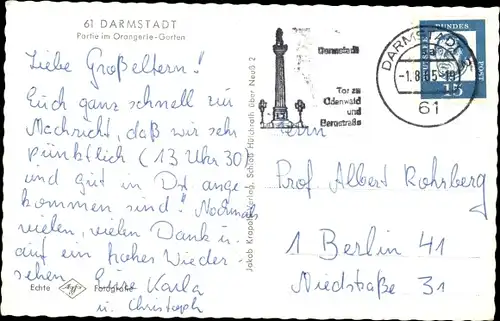 61 DARMSTADT
Partie im Orangerie-Garten
Liebe Großeltern!
Euch ganz schnell zur
Nachricht, daß wir sehr
pünktlich (13 Uhr 30)
und gut in Dst ange
kommen sind! Nochmals
vielen, vielen Dank u.
auf ein frohes Wieder-
sehen. Eure Karla
u. Christoph
Echte Agfa Fotografie
Jakob Krapohl-Verlag, Schloß Hülchrath über Neuß 2
Darmstadt
Tor zu
Odenwald
und
Bergstraße
DARMSTADT 2
-1.8.65-19
61
DEUTSCHE BUNDESPOST
15
Herrn
Prof Albert Rohrberg
1 Berlin 41
Niedstraße 31